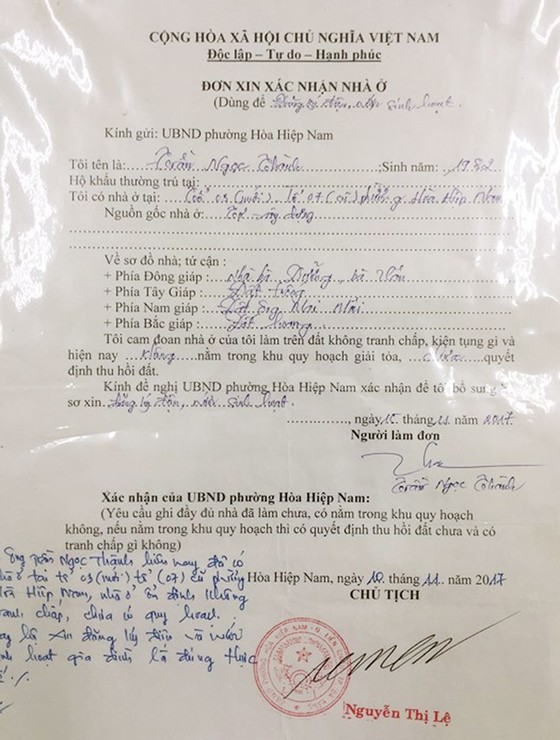 CỘNG HÒA XÃ HỘI CHỦ NGHĨA VIỆT NAM
Độc lập – Tự do – Hạnh phúc
ĐƠN XIN XÁC NHẬN NHÀ Ở
(Dùng để Đăng ký điện, nước sinh hoạt.
Kính gửi: UBND phường Hòa Hiệp Nam
Tôi tên là: Trần Ngọc Thành ;Sinh năm: 1982
Hộ khẩu thường trú tại:
Tôi có nhà ở tại: Tổ 03 (mới) tổ 07 (cũ) phường Hòa Hiệp Nam
Nguồn gốc nhà ở: Tự xây dựng
Về sơ đồ nhà; tứ cận :
+ Phía Đông giáp : Nhà bà Dưỡng, bà
+ Phía Tây Giáp : Đất trống
+ Phía Nam giáp : Đất ông Mai
+ Phía Bắc giáp : Đất
Tôi cam đoan nhà ở của tôi làm trên đất không tranh chấp, kiện tụng gì và
hiện nay không nằm trong khu quy hoạch giải tỏa, chưa quyết
định thu hồi đất.
Kính đề nghị UBND phường Hòa Hiệp Nam xác nhận để tôi bổ sung
sơ xin đăng ký điện, nước sinh hoạt.
, ngày 10 tháng 11 năm 2017
Người làm đơn
Trần Ngọc Thành
Xác nhận của UBND phường Hòa Hiệp Nam:
(Yêu cầu ghi đầy đủ nhà đã làm chưa, có nằm trong khu quy hoạch
không, nếu nằm trong khu quy hoạch thì có quyết định thu hồi đất chưa và có
tranh chấp gì không)
Ông Trần Ngọc Thành hiện nay đã có
ở tại tổ 03 (mới) tổ (07) cũ phường
Hiệp Nam, nhà ở ổn định không
tranh chấp, chưa có quy hoạch.
xin đăng ký điện và nước
sinh hoạt gia đình là đúng thực
Hòa Hiệp Nam, ngày 10 tháng 11 năm 2017
CHỦ TỊCH
Nguyễn Thị Lệ